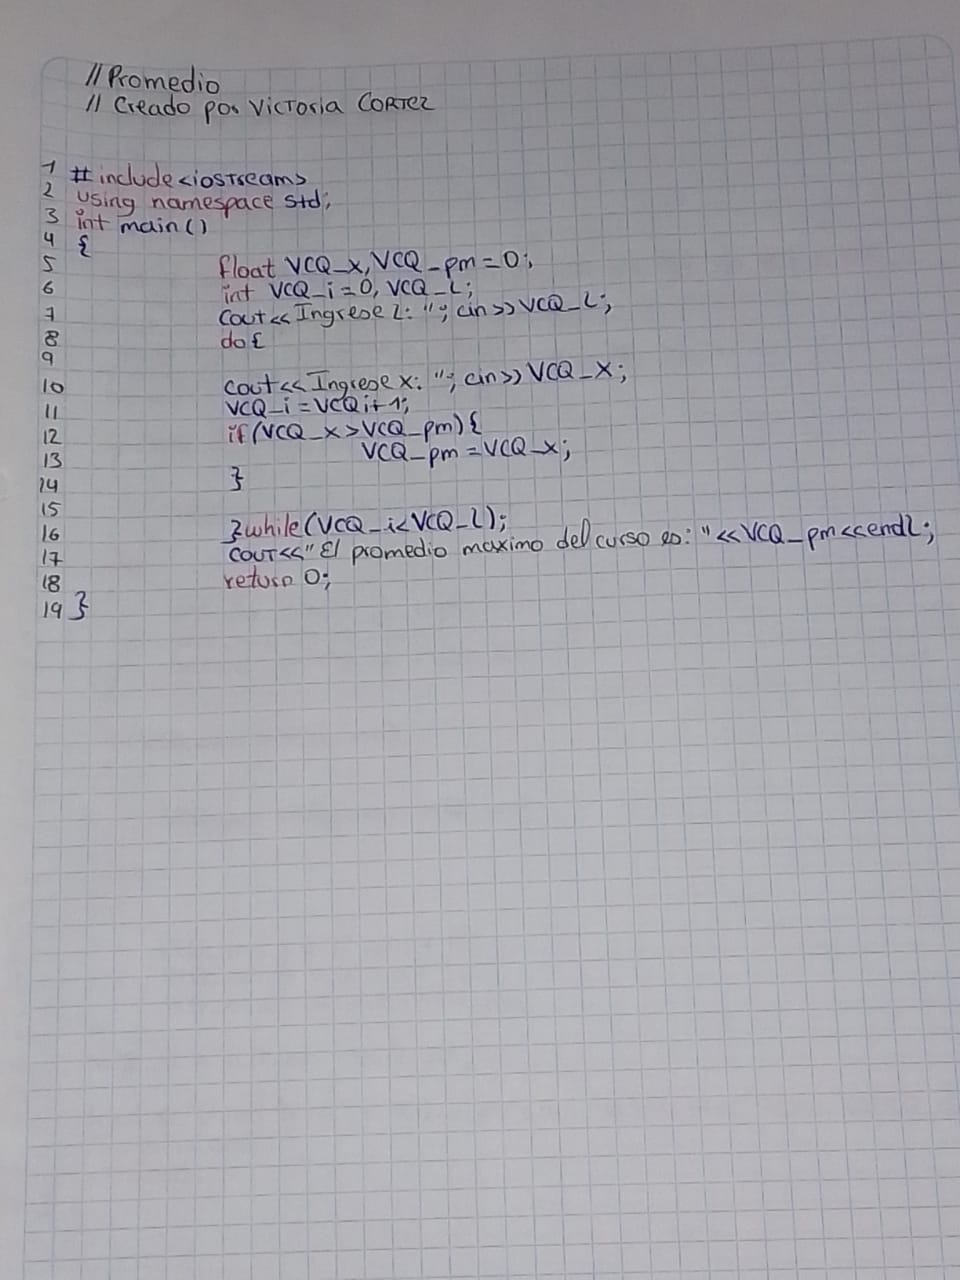 // Promedio
// Creado por Victoria CORTEZ
1 #include<iostream>
2 using namespace std;
3 int main()
4 {
5 float VCQ_x, VCQ_pm=0;
6 int VCQ_i=0, VCQ_L;
7 cout<<Ingrese L: "; cin>>VCQ_L;
8 do{
9
10 cout<<Ingrese x: "; cin>>VCQ_X;
11 VCQ_i=VCQi+1;
12 if(VCQ_x>VCQ_pm){
13 VCQ_pm=VCQ_x;
14 }
15
16 }while(VCQ_i<VCQ_L);
17 cout<<"El promedio maximo del curso es: "<<VCQ_pm<<endl;
18 return 0;
19 }